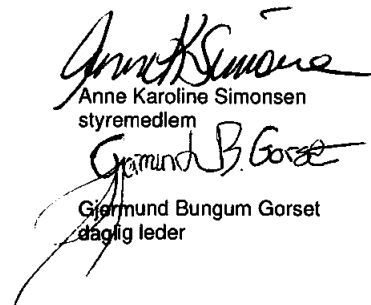 Anne K Simonsen
Anne Karoline Simonsen
styremedlem
Gjermund B. Gorset
Gjermund Bungum Gorset
daglig leder